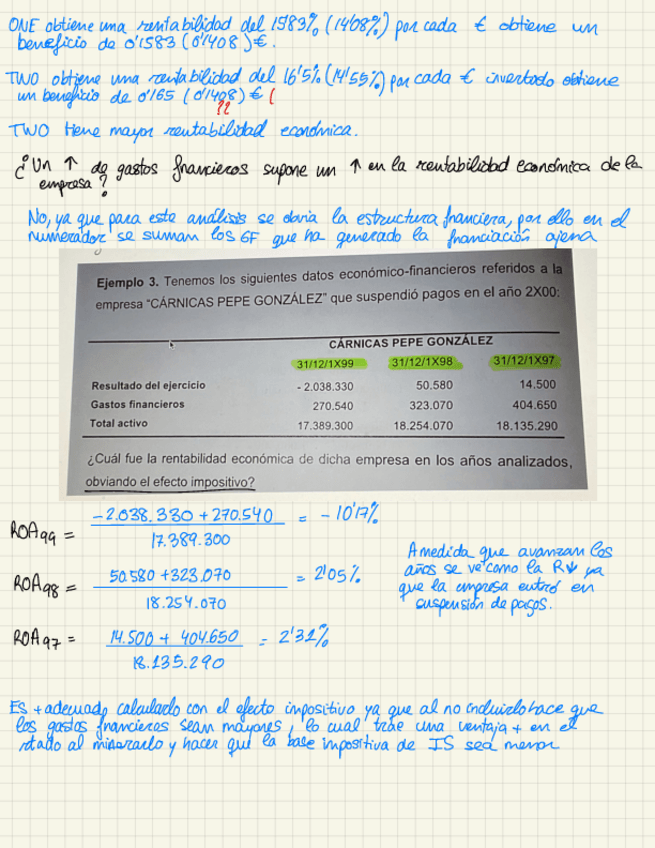 ONE obtiene una rentabilidad del 15'83% (14'08%) por cada € obtiene un
beneficio de 0'1583 (0'1408)€.
TWO obtiene una rentabilidad del 16'5% (14'55%) por cada € invertado obtiene
un beneficio de 0'165 (0'1408)€ (
??
TWO tiene mayor rentabilidad económica.
¿Un ↑ de gastos financieros supone un ↑ en la rentabilidad económica de la
empresa?
No, ya que para este análisis se obvia la estructura financiera, por ello en el
numerador se suman los GF que ha generado la financiación ajena
Ejemplo 3. Tenemos los siguientes datos económico-financieros referidos a la
empresa "CÁRNICAS PEPE GONZÁLEZ" que suspendió pagos en el año 2X00:
CÁRNICAS PEPE GONZÁLEZ
31/12/1X99 31/12/1X98 31/12/1X97
Resultado del ejercicio - 2.038.330 50.580 14.500
Gastos financieros 270.540 323.070 404.650
Total activo 17.389.300 18.254.070 18.135.290
¿Cuál fue la rentabilidad económica de dicha empresa en los años analizados,
obviando el efecto impositivo?
ROA99 = -2.038.330 + 270.540 = - 10'17%
17.389.300
ROA98 = 50.580 + 323.070 = 2'05%
18.254.070
ROA97 = 14.500 + 404.650 = 2'31%
18.135.290
A medida que avanzan los
años se ve como la R↓ ya
que la empresa entró en
suspensión de pagos.
ES + adecuado calcularlo con el efecto impositivo ya que al no incluirlo hace que
los gastos financieros sean mayores, lo cual trae una ventaja + en el
rtado al minorarlo y hacer que la base impositiva de IS sea menor